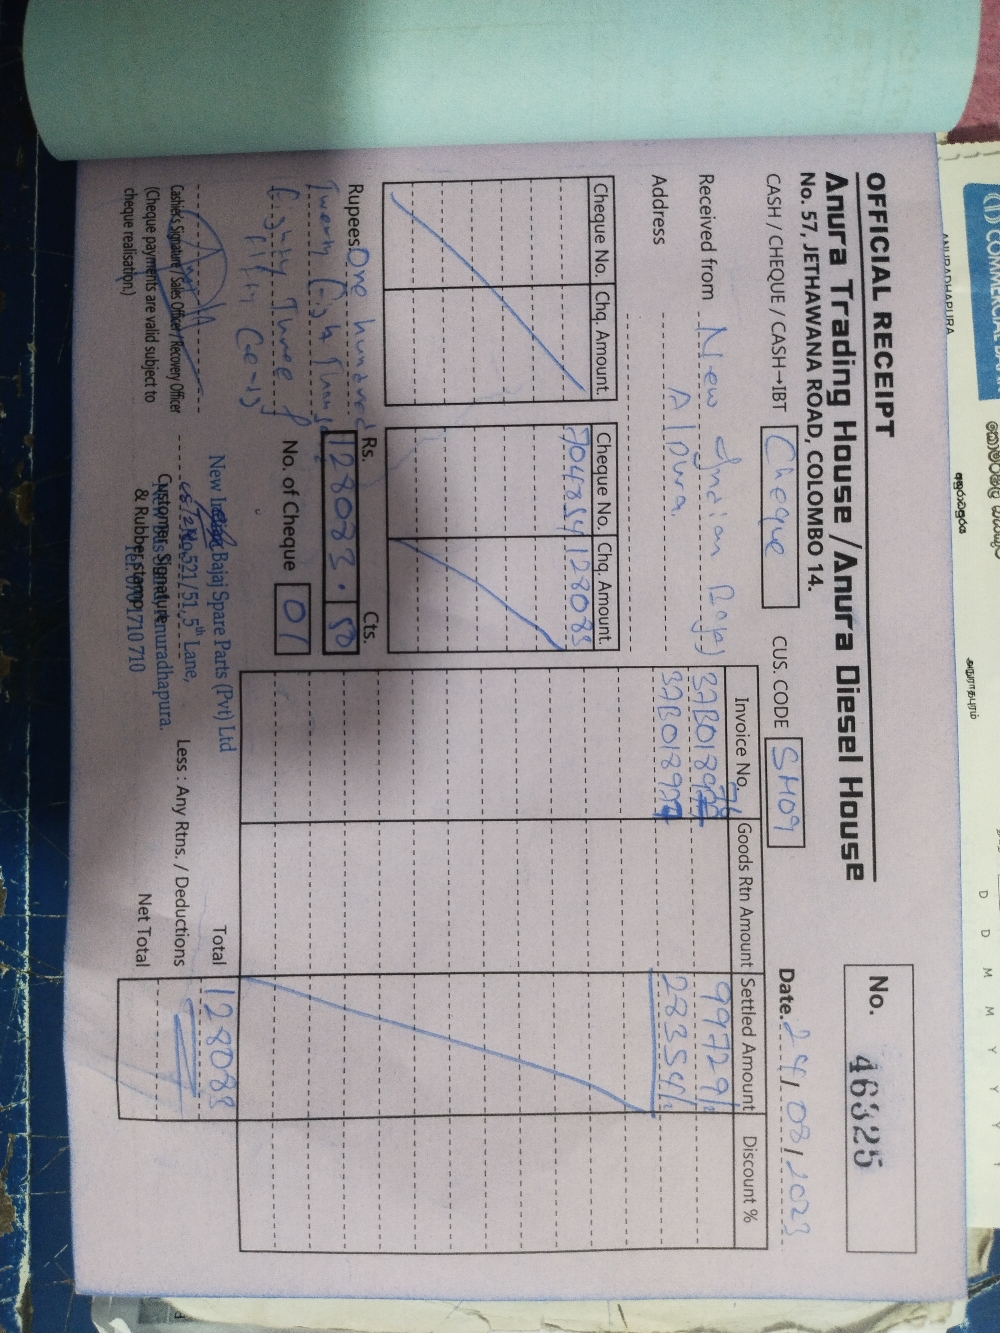 OFFICIAL RECEIPT
Anura Trading House / Anura Diesel House
No. 57, JETHAWANA ROAD, COLOMBO 14.
No. 46325
CASH / CHEQUE / CASH→IBT Cheque
CUS. CODE SH09
Date. 24/08/2023
Received from New Indian Bajaj
Address A/pura
Cheque No. Chq. Amount.
Cheque No. Chq. Amount.
704854 128083
Invoice No. Goods Rtn Amount Settled Amount Discount %
99729/
28354/
Rupees. One hundred
Twenty Eight
Eighty Three &
fifty Cents
Rs. Cts.
128083.50
No. of Cheque 01
Total 128083
Less : Any Rtns. / Deductions
Net Total
Cashier's Signature / Sales Officer / Recovery Officer
(Cheque payments are valid subject to
cheque realisation.)
New Indian Bajaj Spare Parts (Pvt) Ltd
No,521/51, 5th Lane,
Anuradhapura.
Customer Signature
& Rubber stamp
COMMERCIAL
ANURADHAPURA
අනුරාධපුර
அனுராதபுரம்
D D M M Y Y Y Y